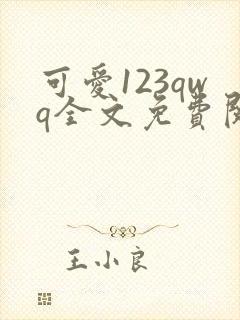 可愛123qw
q全文免費閱
王小良